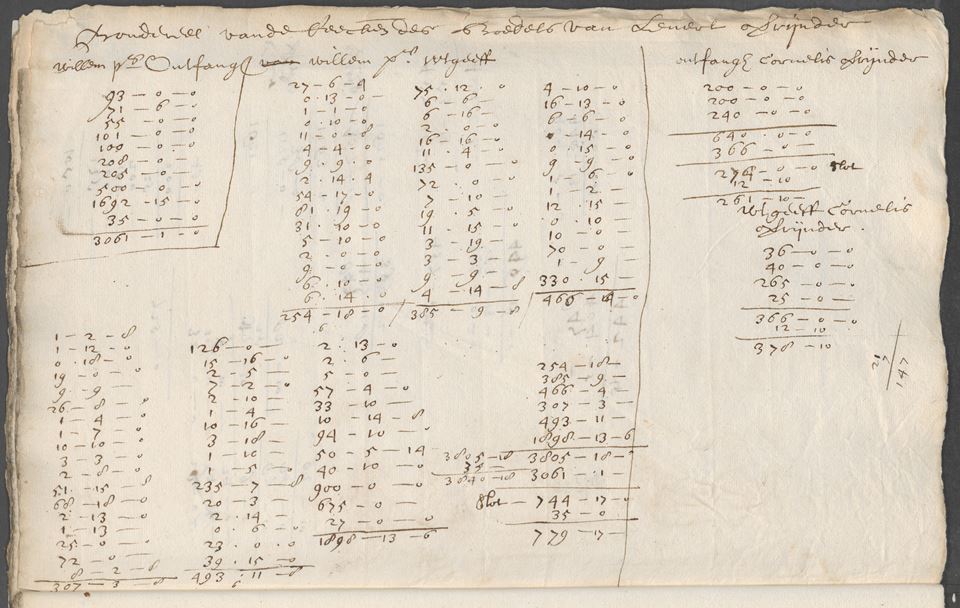 vande des Boedels van Levert Strijnder
willem psz Ontfangh willem psz Wtgeeff
93 — 0 — 0
71 — 6 — 0
55 — 0 — 0
101 — 0 — 0
100 — 0 — 0
208 — 0 —
205 — 0 — 0
500 — 0 — 0
1692 — 15 — 0
35 — 0 — 0
3061 — 1 — 0
27 — 6 — 4
0 . 13 — 0
1 — 1 — 0
0 . 10 — 0
11 — 0 — 8
4 — 4 — 0
9 . 9 . 0
2 . 14 . 4
54 — 17 — 0
81 . 19 — 0
31 . 10 — 0
5 — 10 — 0
2 — 0 — 0
9 — 0 — 0
6 . 10 — 0
6 . 14 . 0
254 — 18 — 0
75 . 12 . 0
6 — 6 —
6 — 16 —
2 . 0 — 0
16 — 16 —
11 . 4 — 0
135 — 0 — 0
72 . 0 — 0
7 — 10 —
19 . 5 — 0
11 . 15 —
3 — 19 —
3 — 3 —
9 — 9 — 0
4 — 14 — 8
385 — 9 — 8
4 — 10 — 0
16 — 13 — 0
6 — 6 — 0
14 — 0
0 . 15 —
9 — 9 — 0
1 . 6 . 0
1 — 2 —
12 . 15 —
0 . 10 —
10 — 0 —
70 — 0
1 — 9 —
330 . 15 —
466 — 4 — 0
ontfangh Cornelis Strijnder
200 — 0 — 0
200 — 0 — 0
240 — 0 — 0
640 . 0 — 0
366 — 0 — 0
274 — 0 — 0 Slot
12 — 10
261 — 10 —
Wtgeeff Cornelis
Strijnder.
36 — 0 — 0
40 — 0 — 0
265 — 0 — 0
25 — 0 — 0
366 — 0 — 0
12 — 10
378 — 10
21
7
147
1 — 2 — 8
1 — 12 — 0
0 . 18 — 0
19 — 0 — 0
9 — 9 — 0
26 — 8 — 0
1 — 4 — 0
1 — 7 — 0
10 — 10 — 0
3 — 3 — 0
2 — 8 — 0
51 . 15 — 8
68 — 18 — 0
2 — 13 — 0
1 — 13 — 0
25 — 0 — 0
72 — 0 — 0
8 — 2 — 8
307 — 3 — 8
126 — 0 — 0
15 — 16 — 0
2 — 5 — 0
7 — 2 . 0
2 — 10 —
1 — 4 — 0
10 — 16 —
3 — 18 — 0
1 — 10 —
1 — 5 — 0
235 — 7 — 8
20 — 3 — 0
2 . 14 —
0 . 6 — 0
23 . 0 . 0
39 . 15 — 0
493 . 11 — 8
2 . 13 — 0
2 . 6 —
5 — 0 —
57 — 4 — 0
33 — 10 —
10 — 14 — 8
94 — 10 — 0
50 — 5 — 14
40 — 10 — 0
900 — 0 — 0
675 — 0 —
27 — 0 — 0
1898 — 13 — 6
254 — 18 —
385 — 9 —
466 — 4 —
307 — 3 —
493 — 11 —
1898 — 13 — 6
3805 — 18 3805 — 18 —
35 — 3061 . 1 —
3840 — 18
Slot — 744 — 17 — 0
35 — 0
779 — 17 —